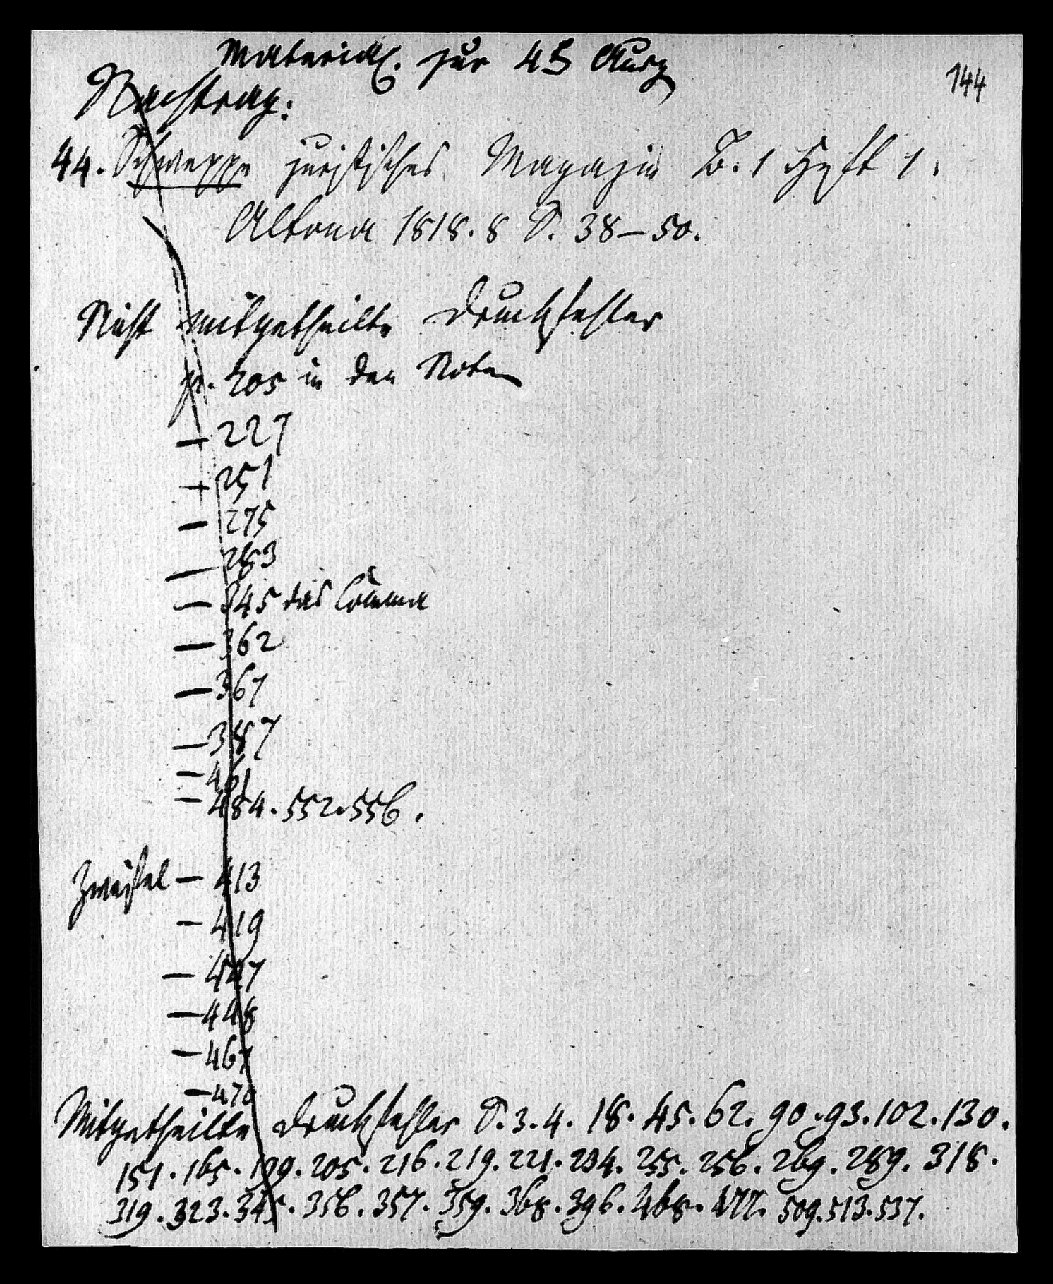 Material. zur 4 5 Ausg
144
Nachtrag:
44. Schweppe juristisches Magazin B. 1 Heft 1.
Altona 1818. 8 S. 38–50.
Nicht mitgetheilte Druckfehler
p. 205 in den Noten
— 227
— 251
— 275
— 283
— 345 das Comma
— 362
— 367
— 387
— 481
— 484. 552. 556.
Zweifel — 413
— 419
— 427
— 448
— 467
— 470
Mitgetheilte Druckfehler S. 3. 4. 18. 45. 62. 90. 93. 102. 130.
151. 165. 199. 205. 216. 219. 221. 234. 255. 256. 269. 289. 318.
319. 323. 345. 356. 357. 359. 368. 396. 468. 477. 509. 513. 537.